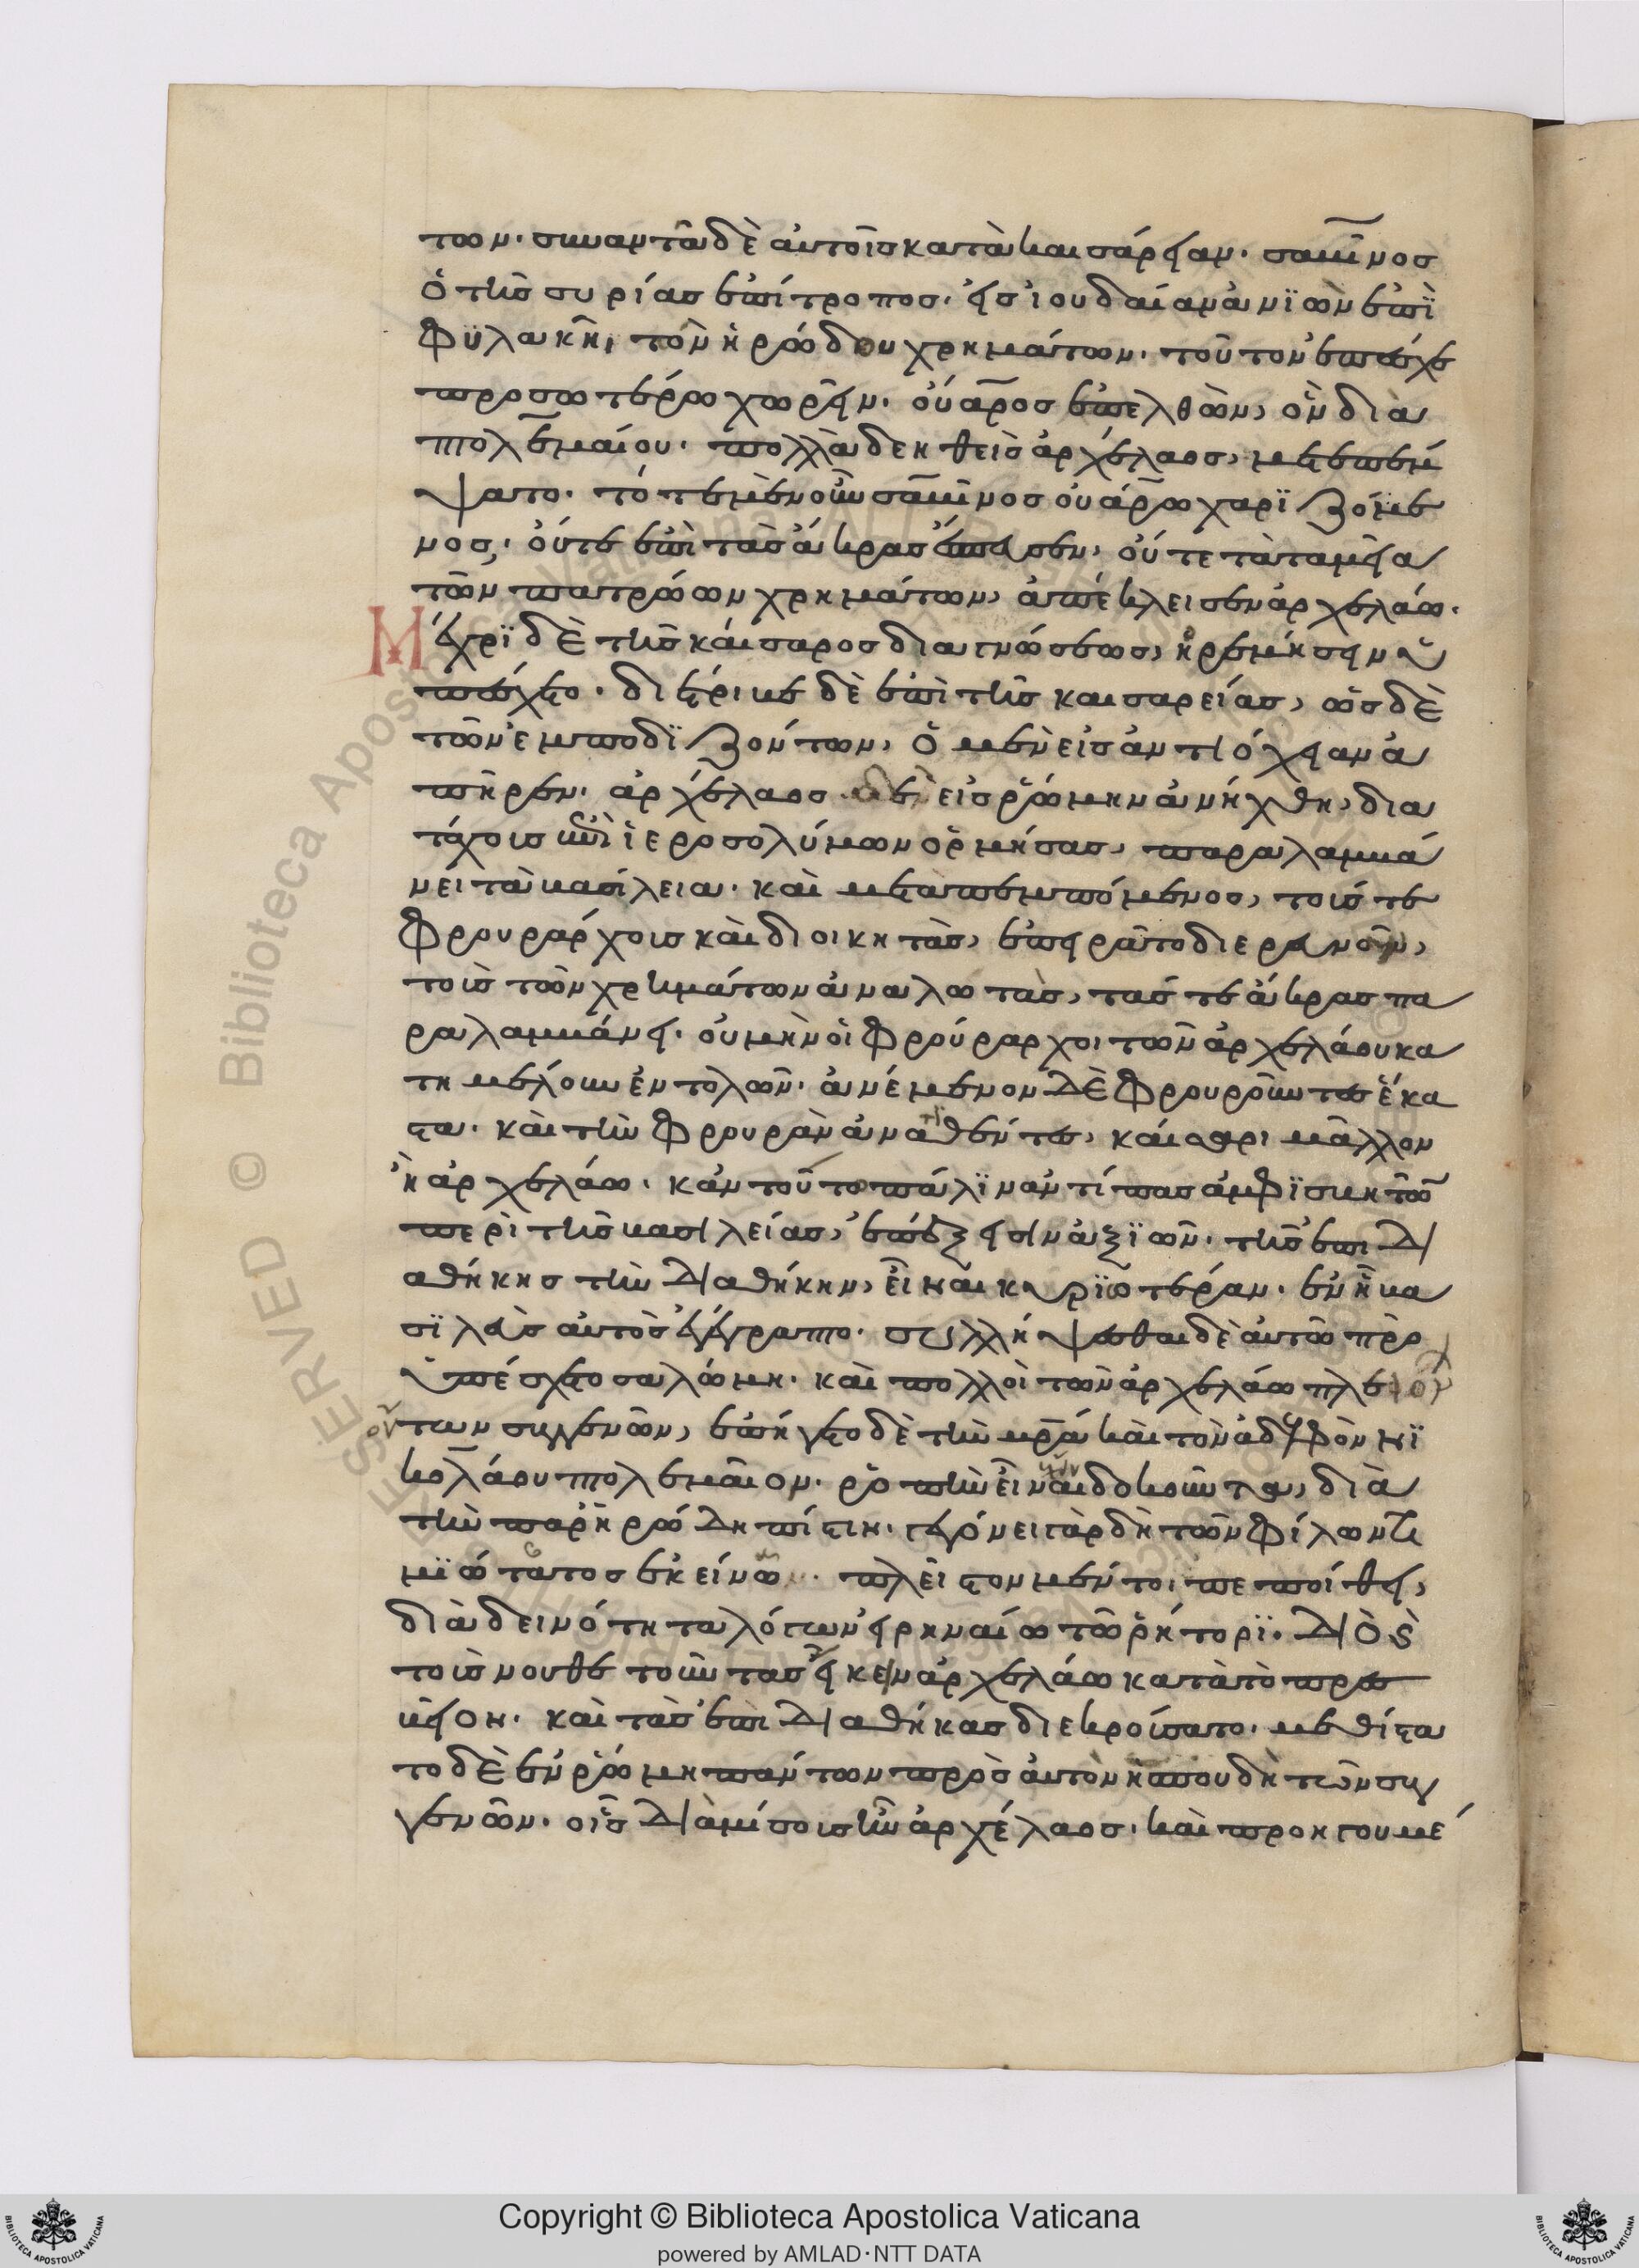 των· συναντᾶ δὲ αὐτοῖς κατὰ καισάρειαν· σαβῖνος
ὁ τῆς συρίας ἐπίτροπος· εἰς ἰουδαίαν ἀνϊὼν ἐπῒ
φϋλακῆ, τῶν ἡρώδου χρημάτων· τοῦτον ἐπέσχε
προσωτέρω χωρεῖν· οὐᾶρος ἐπελθὼν, ὃν διὰ
πτολεμαίου· πολλὰ δεηθεὶς ἀρχέλαος, μετεπέμ
ψατο· τότε μὲν οὖν σαβῖνος οὐάρω χαρϊζόμε
νος, οὔτε ἐπὶ τὰς ἄκρας ἔσπευσεν, οὔτε τὰ ταμεῖα
τῶν πατρώων χρημάτων, ἀπέκλεισεν ἀρχελάω·
Μέχρϊ δὲ τῆς καίσαρος διαγνώσεως, ἠρεμήσειν ὑ
πέσχετο· διέτριβε δὲ ἐπὶ τῆς καισαρείας, ὡς δὲ
τῶν ἐμποδϊζόντων, ὁ μὲν εἰς ἀντιόχειαν ἀ
πῆρεν· ἀρχέλαος δὲ εἰς ῥώμην ἀνήχθη, δια
τάχους ἐπὶ ἱεροσολύμων ὁρμήσας, παραλαμβά
νει τὰ βασίλεια· καὶ μεταπεμπόμενος, τούς τε
φρουράρχους καὶ διοικητὰς, ἐπειρᾶτο διερευνᾶν,
τοὺς τῶν χρημάτων ἀναλωτὰς, τάς τε ἄκρας πα
ραλαμβάνειν· οὐ μὴν οἱ φρούραρχοι τῶν ἀρχελάου κα
τημέλουν ἐντολῶν· ἀνέμενον δὲ φρουροῦντες ἕκα
στα· καὶ τὴν φρουρὰν ἀνατιθέντες, καίσαρι μᾶλλον
ἢ ἀρχελάω· κἀν τούτω πάλϊν ἀντίπας ἀμφϊσβητῶν
περὶ τῆς βασιλείας, ἐπέξεισιν ἀξϊῶν· τῆς ἐπιδι
αθήκης τὴν διαθήκην, εἶναι κυρϊωτέραν· ἐν ἧ βα
σϊλεὺς αὐτὸς ἐγέγραπτο· συλλήψεσθαι δὲ αὐτῶ προ
ϋπέσχετο σαλώμη· καὶ πολλοὶ τῶν ἀρχελάω πλεόν
των συγγενῶν, ἐπήγετο δὲ τὴν μητέρα καὶ τὸν ἀδελφὸν νϊ
κολάου πτολεμαῖον· ῥοπὴν εἶναι δοκοῦντα, διὰ
τὴν παρ' ἡρώδη πίστιν· γεγόνει γὰρ δὴ τῶν φίλων τι
μϊώτατος ἐκείνω· πλεῖστον μέντοι πεποίθει,
διὰ δεινότητα λόγων εἰρηναίω τῶ ῥήτορϊ· διὸ καὶ
τοὺς νουθετοῦντας εἴκειν ἀρχελάω κατὰ τὸ πρεσ
βεῖον· καὶ τὰς ἐπιδιαθήκας διεκρούσατο· μεθίστα
το δὲ ἐν ῥώμη πάντων πρὸς αὐτὸν ἡ σπουδὴ τῶν συγ
γενῶν· οἷς διὰ μίσους ἦν ἀρχέλαος· καὶ προηγουμέ
Copyright © Biblioteca Apostolica Vaticana
powered by AMLAD·NTT DATA